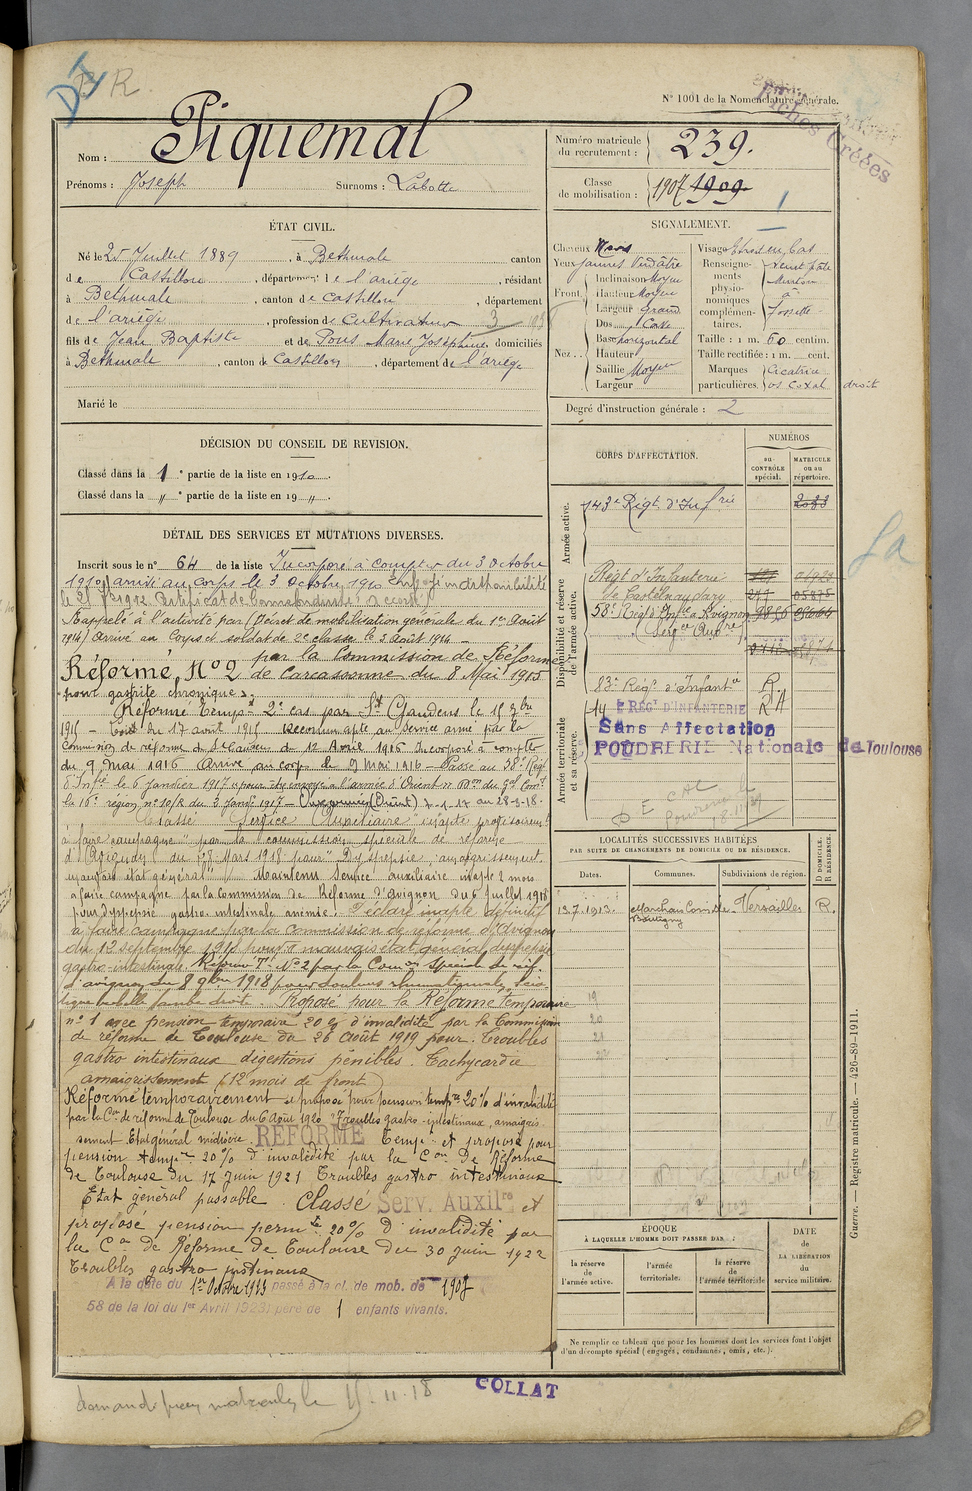 R
N° 1001 de la Nomenclature générale.
Fiches Créées
Nom : Piquemal
Prénoms : Joseph Surnoms : Labotte
Numéro matricule du recrutement : 239.
Classe de mobilisation : 1907 1909
ÉTAT CIVIL.
Né le 25 Juillet 1889, à Bethmale canton
de Castillon, département de l'ariège, résidant
à Bethmale, canton de Castillon, département
de l'ariège, profession de Cultivateur
fils de Jean Baptiste et de Pous Marie Joséphine domiciliés
à Bethmale, canton de Castillon, département de l'ariège
Marié le
SIGNALEMENT.
Cheveux Noirs
Yeux jaunes Verdâtre
Front Inclinaison Moyen
Hauteur Moyen
Largeur Grand
Nez Dos Cave
Base horizontal
Hauteur
Saillie Moyen
Largeur
Visage Etroit en bas
Renseignements physionomiques complémentaires. Teint pâle
Menton
à
fossette
Taille : 1 m. 60 centim.
Taille rectifiée : 1 m. cent.
Marques particulières. Cicatrice
os Coxal droit
Degré d'instruction générale : 2
DÉCISION DU CONSEIL DE REVISION.
Classé dans la 1e partie de la liste en 1910.
Classé dans la " e partie de la liste en 19 ".
CORPS D'AFFECTATION.
NUMÉROS
au CONTRÔLE spécial.
MATRICULE ou au répertoire.
Armée active.
143e Régt d'Infrie 2083
Disponibilité et réserve de l'armée active.
Régt d'Infanterie
de Castelnaudary
58e Régt d'Infie Avignon
83e Régt d'Infante R.
Armée territoriale et sa réserve.
14 E RÉGT D'INFANTERIE RA
Sans Affectation
POUDRERIE Nationale de Toulouse
DÉTAIL DES SERVICES ET MUTATIONS DIVERSES.
Inscrit sous le n° 64 de la liste Incorporé à compter du 3 Octobre
1910, arrivé au corps le 3 Octobre 1910. en disponibilité
le 25 1912 Certificat de bonne conduite accordé
Rappelé à l'activité par (Décret de mobilisation générale du 1er Août
1914) Arrivé au Corps et soldat de 2e classe le 3 août 1914
Réformé N° 2 par la Commission de Réforme
de Carcassonne du 8 Mai 1915
pour gastrite chronique
Réformé Tempre 2e cas par St Gaudens le 15
1915 du 17 avril 1915 reconnu apte au service armé par la
commission de réforme de St Gaudens du 12 Avril 1916 Incorporé à compter
du 9 mai 1916 Arrivé au corps le 9 mai 1916 - Passé au 58e Régt
d'Infie le 6 janvier 1917 pour être envoyé à l'armée d'Orient
la 16e région, n° 10/R du 3 janv 1917 - Aux armées (Orient) 7-1-17 au 28-3-18.
Classé Service Auxiliaire inapte provisoirement
à faire campagne par la commission spéciale de réforme
d'Avignon du Mars 1918 pour Dyspepsie, amaigrissement
mauvais état général. Maintenu Service auxiliaire inapte 2 mois
à faire campagne par la Commission de Réforme d'Avignon du 6 Juillet 1918
pour dyspepsie gastro-intestinale anémie. Déclaré inapte définitif
à faire campagne par la commission de réforme d'Avignon
du 12 septembre 1918 pour mauvais état général dyspepsie
gastro-intestinale. Réformé T. N°2 par la Comon Spéciale de réf.
d'Avignon du 8 9bre 1918 pour douleurs rhumatismales
jambe droite. Proposé pour la Réforme temporaire
n° 1 avec pension temporaire 20% d'invalidité par la Commission
de réforme de Toulouse du 26 Août 1919 pour. Troubles
gastro intestinaux digestions pénibles. Tachycardie
amaigrissement (12 mois de front)
Réformé temporairement et proposé pour pension tempre 20% d'invalidité
par la Con de réforme de Toulouse du 6 Août 1920 Troubles gastro-intestinaux, amaigris
sement Etat général médiocre. RÉFORMÉ Tempre et proposé pour
pension tempre 20% d'invalidité par la Con De Réforme
de Toulouse du 17 Juin 1921 Troubles gastro intestinaux
Etat général passable. Classé Serv. Auxilre et
proposé pension permte 20% d'invalidité par
la Con de Réforme de Toulouse du 30 Juin 1922
Troubles gastro intestinaux
A la date du 1er Octobre 1923 passé à la cl. de mob. de 1907
58 de la loi du 1er Avril 1923) père de 1 enfants vivants.
LOCALITÉS SUCCESSIVES HABITÉES
PAR SUITE DE CHANGEMENTS DE DOMICILE OU DE RÉSIDENCE.
Dates. Communes. Subdivisions de région. D DOMICILE. R RÉSIDENCE.
13.7.1913. Versailles R.
19
20
21
ÉPOQUE
À LAQUELLE L'HOMME DOIT PASSER DANS :
la réserve de l'armée active.
l'armée territoriale.
la réserve de l'armée territoriale
DATE DE LA LIBÉRATION du service militaire.
Ne remplir ce tableau que pour les hommes dont les services font l'objet
d'un décompte spécial (engagés, condamnés, omis, etc.).
Guerre. — Registre matricule. — 426-89-1911.
COLLAT